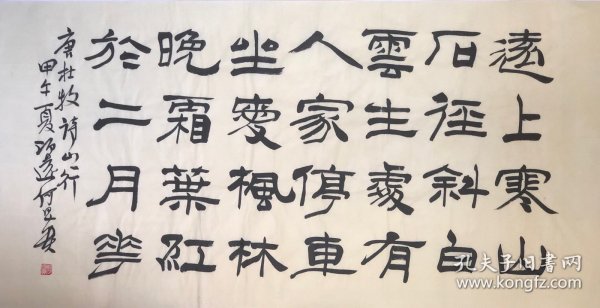 遠上寒山
石徑斜白
雲生處有
人家停車
坐愛楓林
晚霜葉紅
於二月華
唐杜牧詩山行
甲午夏
孔夫子旧书网
www.kongfz.com